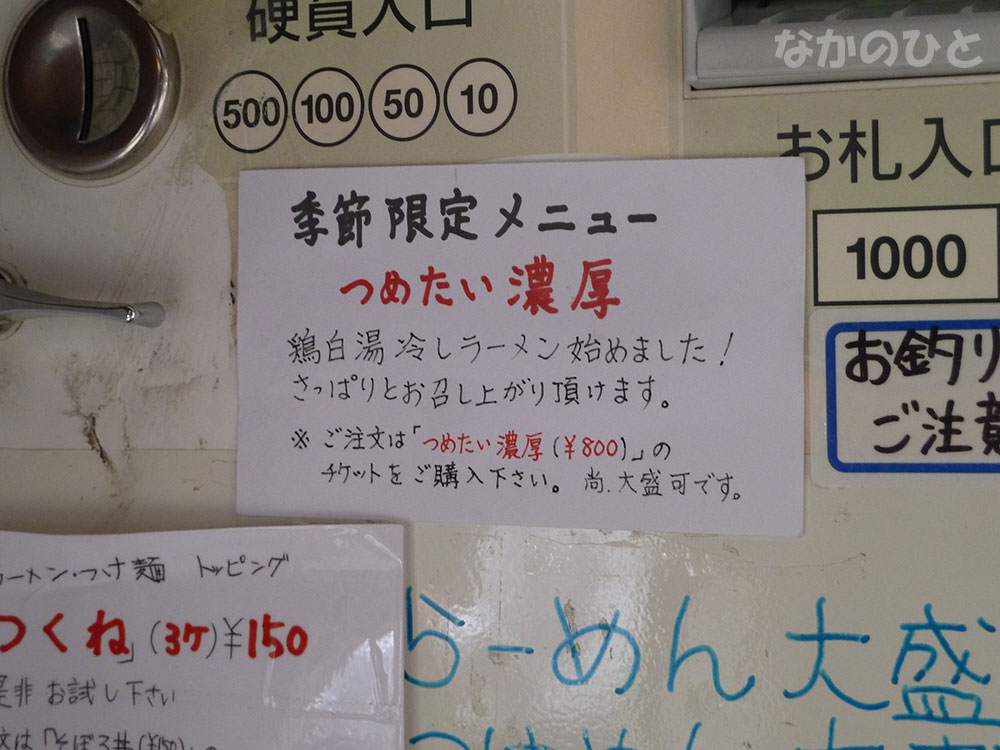 硬貨入口
500 100 50 10
なかのひと
お札入口
1000
季節限定メニュー
つめたい濃厚
鶏白湯冷しラーメン始めました！
さっぱりとお召し上がり頂けます。
※ご注文は「つめたい濃厚(¥800)」の
チケットをご購入下さい。尚、大盛可です。
お釣り
ご注意
ラーメン・つけ麺 トッピング
つくね」(3ケ)¥150
是非お試し下さい
らーめん大盛